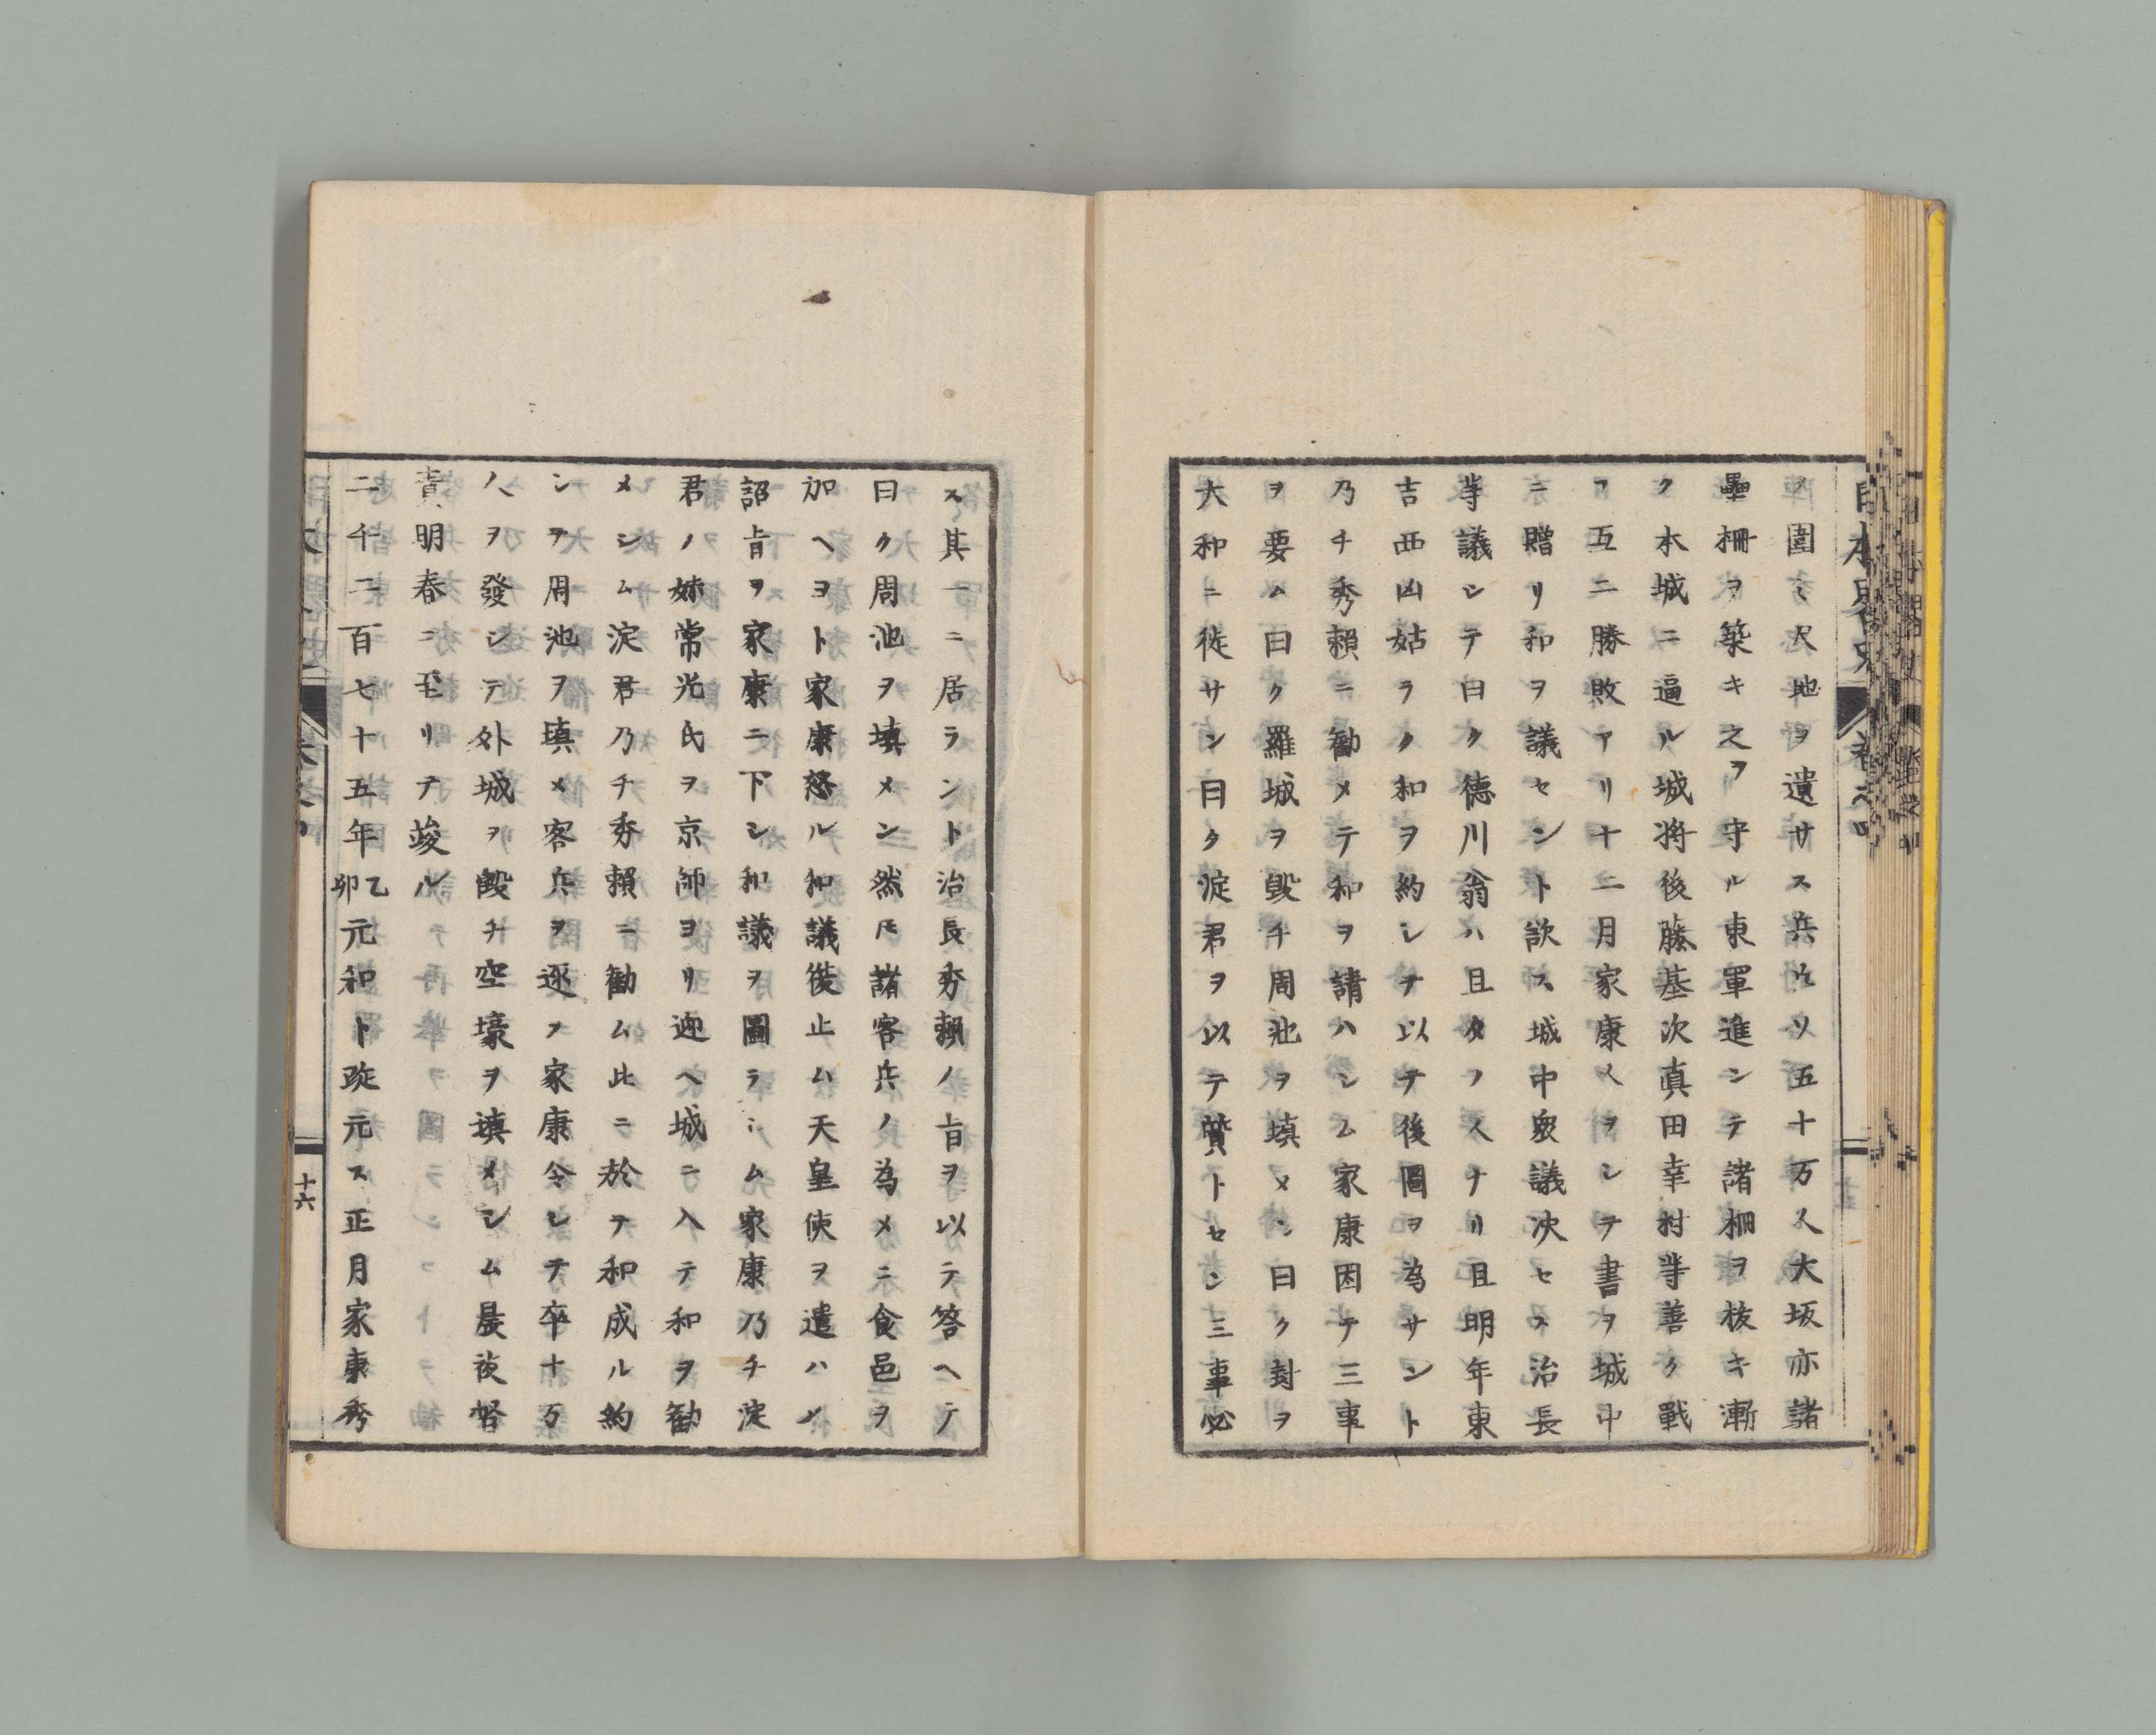 ノ圍ミ尺地ヲ遺サス兵凡ソ五十万人大坂亦諸
壘柵ヲ築キ之ヲ守ル東軍進ンテ諸柵ヲ拔キ漸
ク本城ニ逼ル城将後藤基次真田幸村等善ク戰
フ互ニ勝敗アリ十二月家康人ヲシテ書ヲ城中
ニ贈リ和ヲ議セント欲ス城中衆議决セス治長
等議シテ曰ク德川翁ハ且夕ノ人ナリ且明年東
吉西凶姑ラク和ヲ約シテ以テ後圖ヲ為サント
乃チ秀賴ニ勧メテ和ヲ請ハシム家康因テ三事
ヲ要ム曰ク羅城ヲ毀チ周池ヲ填メン曰ク封ヲ
大和ニ徙サン曰ク淀君ヲ以テ質トセン三事必
ス其一ニ居ラント治長秀賴ノ旨ヲ以テ答ヘテ
曰ク周池ヲ填メン然𪜈諸客兵ノ為メニ食邑ヲ
加ヘヨト家康怒ル和議復止ム天皇使ヲ遣ハシ
詔旨ヲ家康ニ下シ和議ヲ圖ラシム家康乃チ淀
君ノ妹常光氏ヲ京師ヨリ迎ヘ城ニ入テ和ヲ勧
メシム淀君乃チ秀賴ニ勧ム此ニ於テ和成ル約
シテ周池ヲ填メ客兵ヲ逐フ家康令シテ卒十万
人ヲ發シテ外城ヲ毀チ空壕ヲ填メシム晨夜督
責明春ニ至リテ竣ル
二千二百七十五年乙卯元和ト改元ス正月家康秀
十六